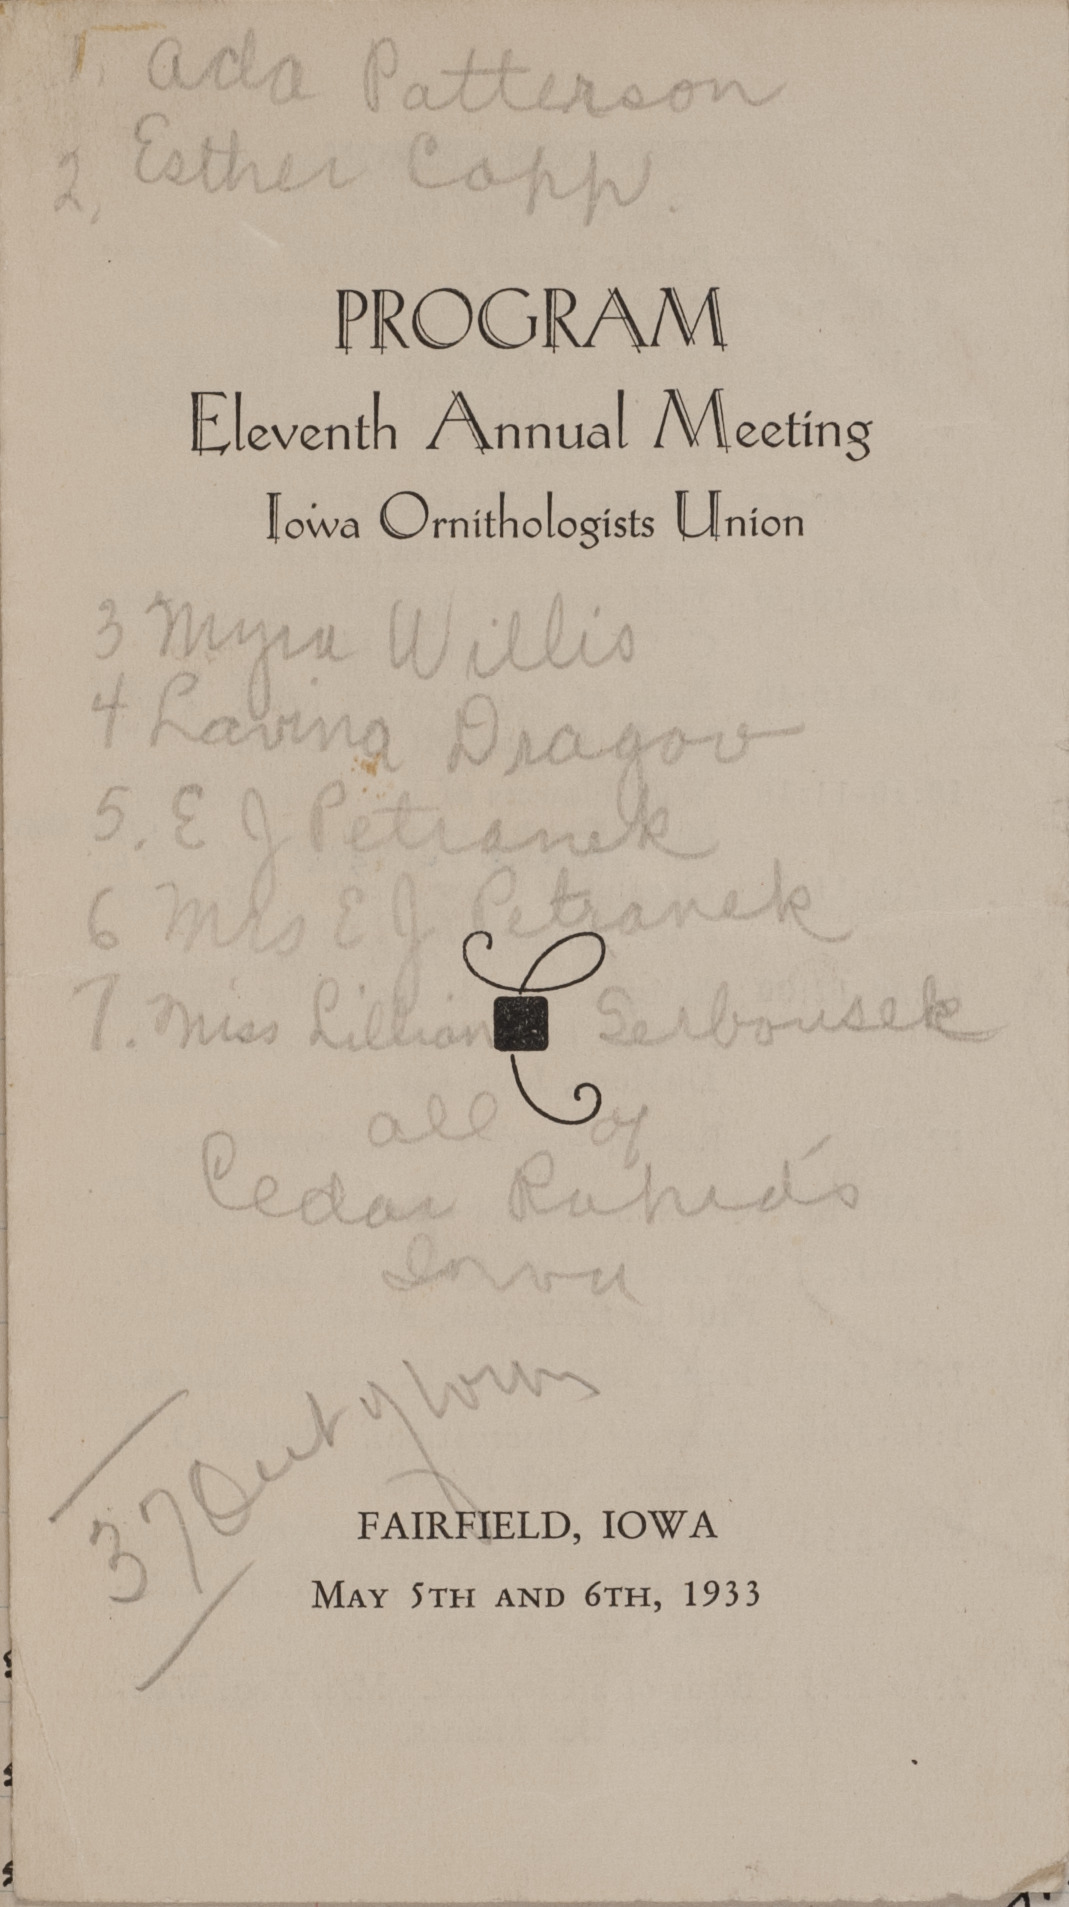 1, Ada Patterson
2, Esther Copp.
PROGRAM
Eleventh Annual Meeting
Iowa Ornithologists Union
3 Myra Willis
4 Lavina Dragov
5. E J Petranek
6 Mrs E J Petranek
7. Miss Lillian Serbousek
all of
Cedar Rapid's
Iowa
37 Out of town
FAIRFIELD, IOWA
MAY 5TH AND 6TH, 1933